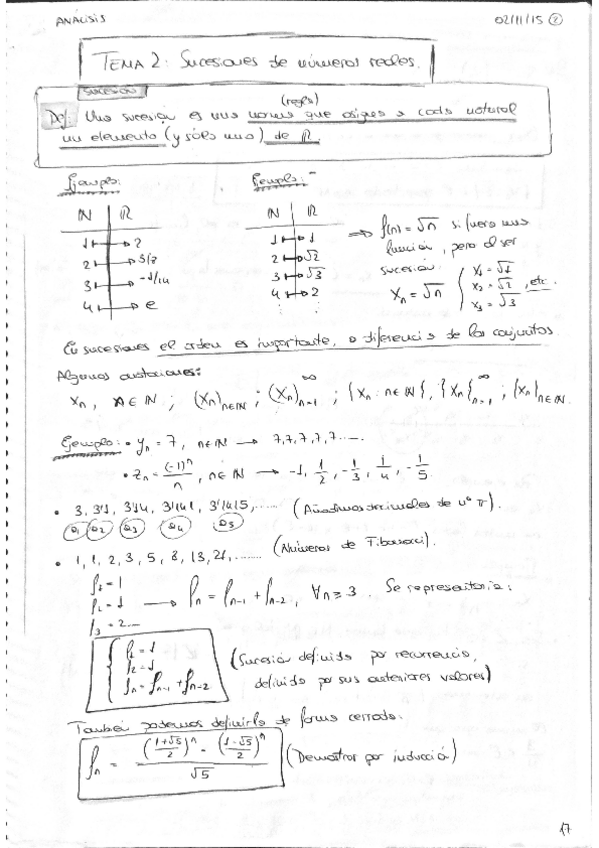 ANÁLISIS
02/11/15 ②
TEMA 2: Sucesiones de números reales.
SUCESIÓN
(regla)
Def: Una sucesión es una norma que asigna a cada natural
un elemento (y sólo uno) de ℝ.
Ejemplo: Ejemplo:
ℕ | ℝ ℕ | ℝ
1 ↦ 2 1 ↦ 1
2 ↦ 3/7 2 ↦ √2
3 ↦ -1/14 3 ↦ √3
4 ↦ e 4 ↦ 2
⇒ f(n) = √n si fuera una
función, pero al ser
sucesión:
Xn = √n { X₁ = √1
X₂ = √2 , etc.
X₃ = √3
En sucesiones el orden es importante, a diferencia de los conjuntos.
Algunas anotaciones:
Xn, n ∈ ℕ ; (Xn)n∈ℕ ; (Xn)∞n=1 ; {Xn : n ∈ ℕ}, {Xn}∞n=1 ; {Xn}n∈ℕ
Ejemplo: • yn = 7, n ∈ ℕ → 7,7,7,7,7.....
• zn = (-1)ⁿ/n , n ∈ ℕ → -1, 1/2, -1/3, 1/4, -1/5
• 3, 3'1, 3'14, 3'141, 3'1415, ...... (Añadimos decimales de nº π).
a₁ a₂ a₃ a₄ a₅
• 1, 1, 2, 3, 5, 8, 13, 21, ....... (Números de Fibonacci).
f₁ = 1
f₂ = 1 → fn = fn-1 + fn-2, ∀n ≥ 3. Se representaría:
f₃ = 2....
{ f₁ = 1
f₂ = 1
fn = fn-1 + fn-2
(Sucesión definida por recurrencia,
definida por sus anteriores valores)
También podemos definirla de forma cerrada:
fn = (((1+√5)/2)ⁿ - ((1-√5)/2)ⁿ)/√5 (Demostrar por inducció)
17